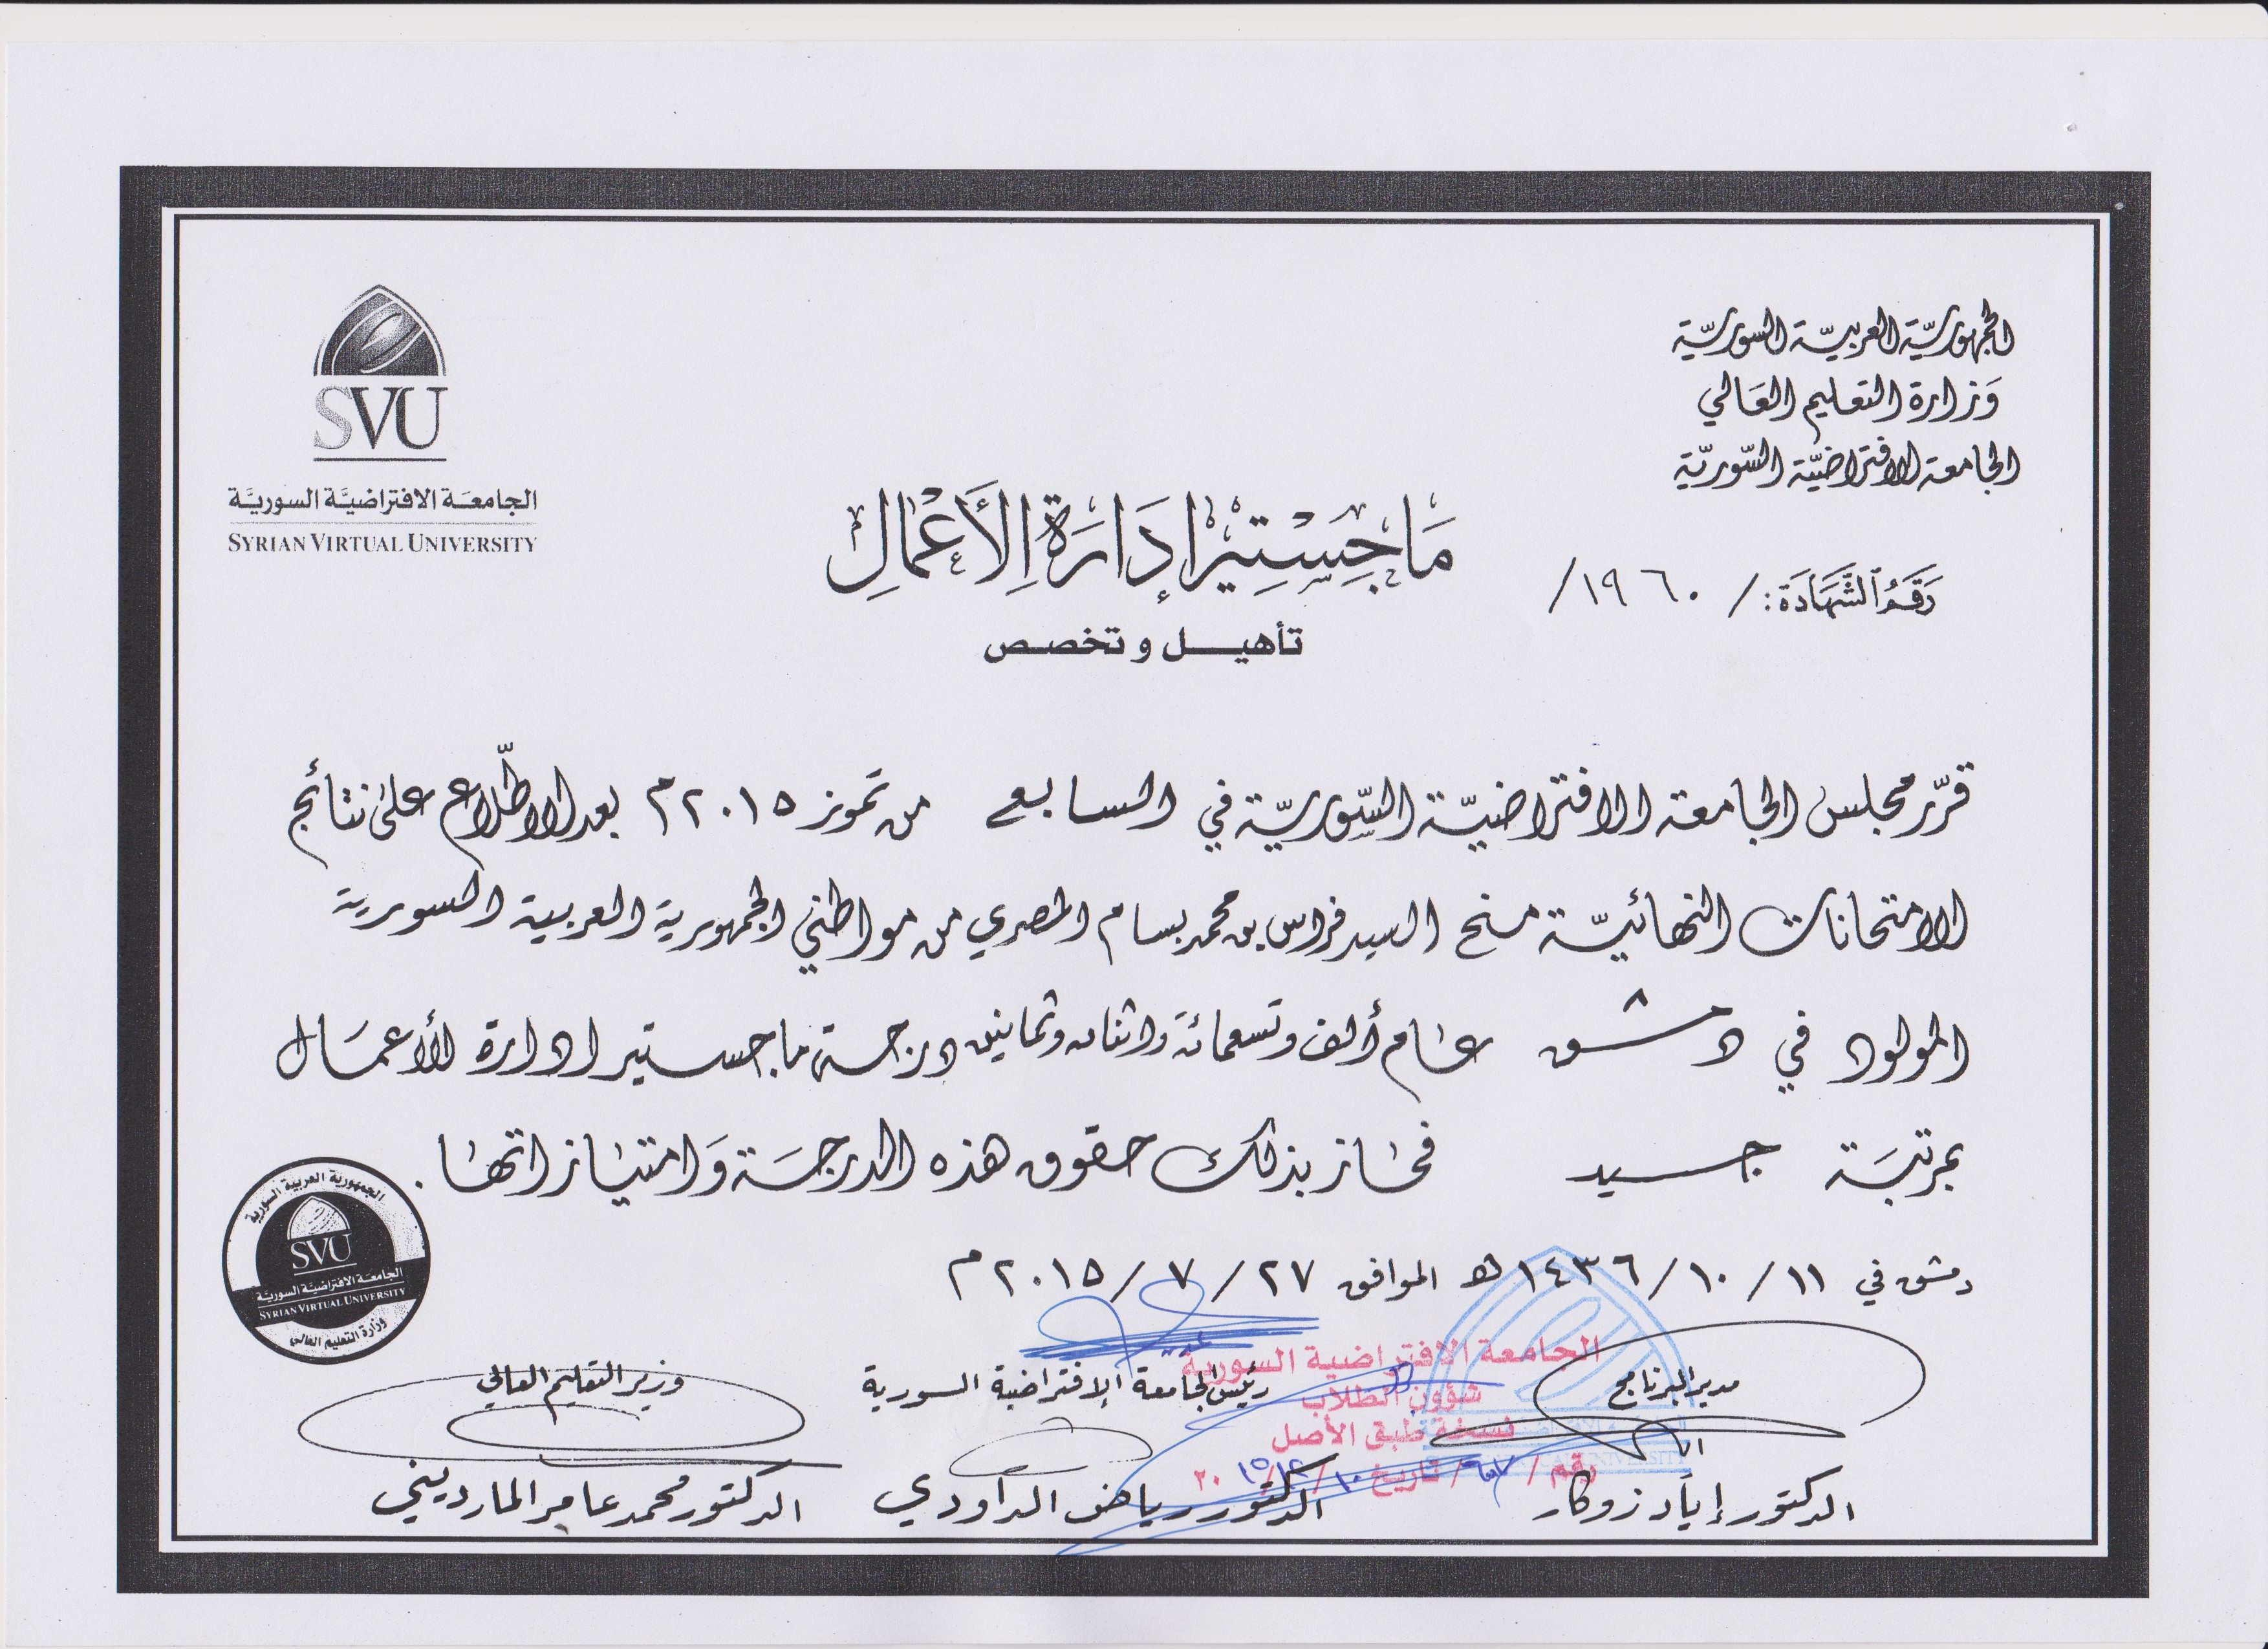 الجمهوريّة العربيّة السوريّة
وَزارة التعليم العَالي
الجامعة الافتراضيّة السّوريّة
SVU
الجامعَـة الافتراضيَّـة السوريَّـة
SYRIAN VIRTUAL UNIVERSITY
مَاجِسْتِير إدَارَة الأَعْمَالِ
تأهيـــل و تخصـص
رَقَمُ الشَّهَادَة: / ١٩٦٠ /
قرّر مجلس الجامعة الافتراضيّة السّوريّة في السابع من تموز ٢٠١٥ م بعد الاطّلاع على نتائج
الامتحانات النهائيّة منح السيد فراس بن محمد بسام المصري من مواطني الجمهورية العربية السورية
المولود في دمشق عام ألف وتسعمائة واثنان وثمانين درجة ماجستير ادارة الأعمَال
بمرتبَة جيد فحاز بذلك حقوق هذه الدرجَة وَامتيازاتها .
دمشق في ١١ / ١٠ / ١٤٣٦ هـ الموافق ٢٧ / ٧ / ٢٠١٥ م
الجمهورية العربية السورية
SVU
الجامعَـة الافتراضيَّـة السوريَّـة
SYRIAN VIRTUAL UNIVERSITY
وزارة التعليم العالي
مدير البرنامج
رئيس الجامعة الإفتراضية السورية
وزير التعليم العالي
الجامعة الافتراضية السورية
شؤون الطلاب
نسخة طبق الأصل
رقم / / تاريخ ١٠ / ١٢ / ٢٠١٥
الدكتور إيَاد زوكار
الدكتور رياض الداودي
الدكتور محمد عامر المارديني